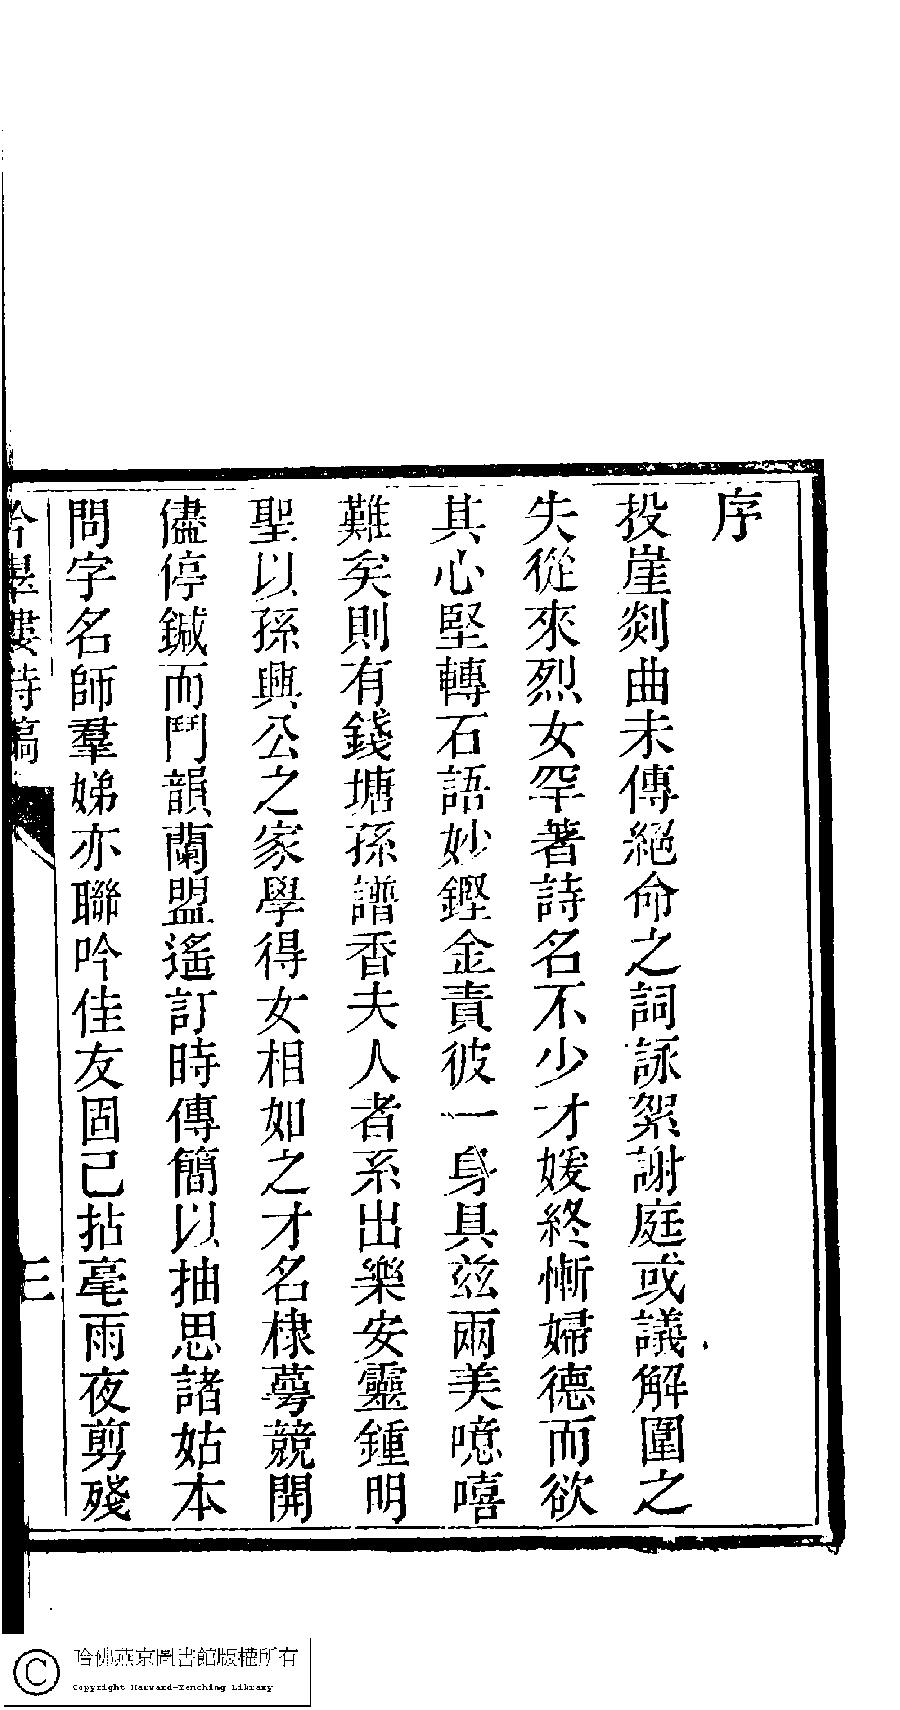 序
投崖剡曲未傳絕命之詞詠絮謝庭或議解圍之
失從來烈女罕著詩名不少才媛終慚婦德而欲
其心堅轉石語妙鏗金責彼一身具茲兩美噫嘻
難矣則有錢塘孫譜香夫人者系出樂安靈鍾明
聖以孫興公之家學得女相如之才名棣萼競開
儘停鍼而鬥韻蘭盟遙訂時傳簡以抽思諸姑本
問字名師羣娣亦聯吟佳友固已拈毫雨夜剪殘
樓詩稿
三
哈佛燕京圖書館版權所有
Copyright Harvard-Yenching Library